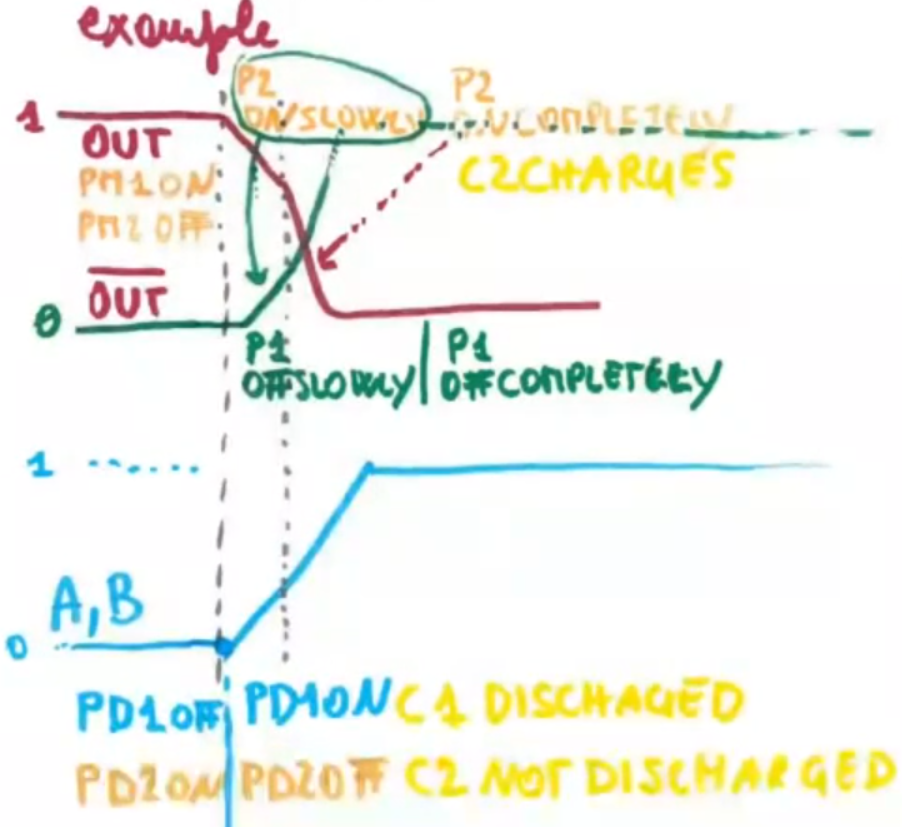 example
P2
ON/SLOWLY
P2
ON COMPLETELY
1
OUT
C2CHARGES
PM1ON
PM2OFF
OUT
0
P1
OFFSLOWLY
P1
OFFCOMPLETELY
1
A,B
0
PD1OFF PD1ON C1 DISCHAGED
PD2ON PD2OFF C2 NOT DISCHARGED